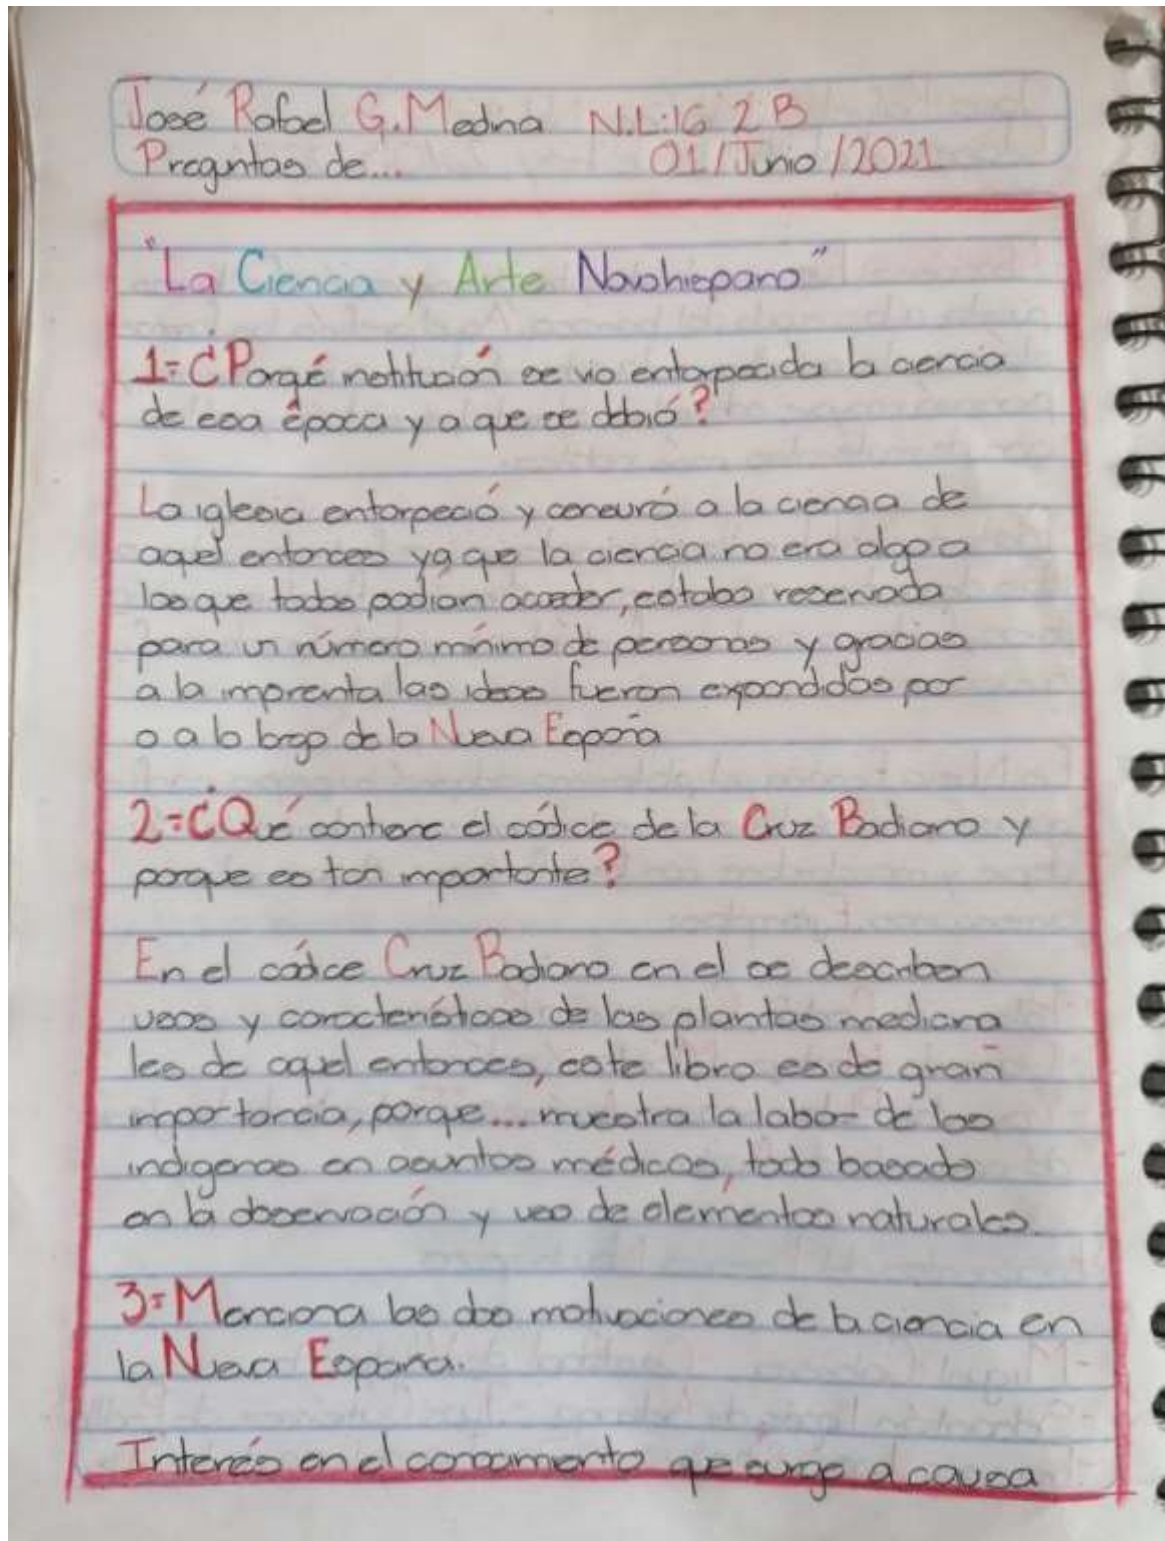 José Rafael G. Medina N.L:16 2 B
Preguntas de... 01/Junio/2021
"La Ciencia y Arte Novohispano"
1=¿Porqé institución se vio entorpecida la ciencia
de esa época y a que se debió?
La iglesia entorpeció y censuró a la ciencia de
aquel entonces ya que la ciencia no era algo a
los que todos podian acceder, estaba reservada
para un número mínimo de personas y gracias
a la imprenta las ideas fueron expandidas por
o a lo largo de la Nueva España
2=¿Qué contiene el códice de la Cruz Badiano y
porque es tan importante?
En el códice Cruz Badiano en el se describen
usos y características de las plantas medicina
les de aquel entonces, este libro es de gran
importancia, porque... muestra la labor de los
indígenas en asuntos médicos, todo basado
en la observación y uso de elementos naturales.
3=Menciona las dos motivaciones de la ciencia en
la Nueva España.
Interés en el conocimiento que surge a causa